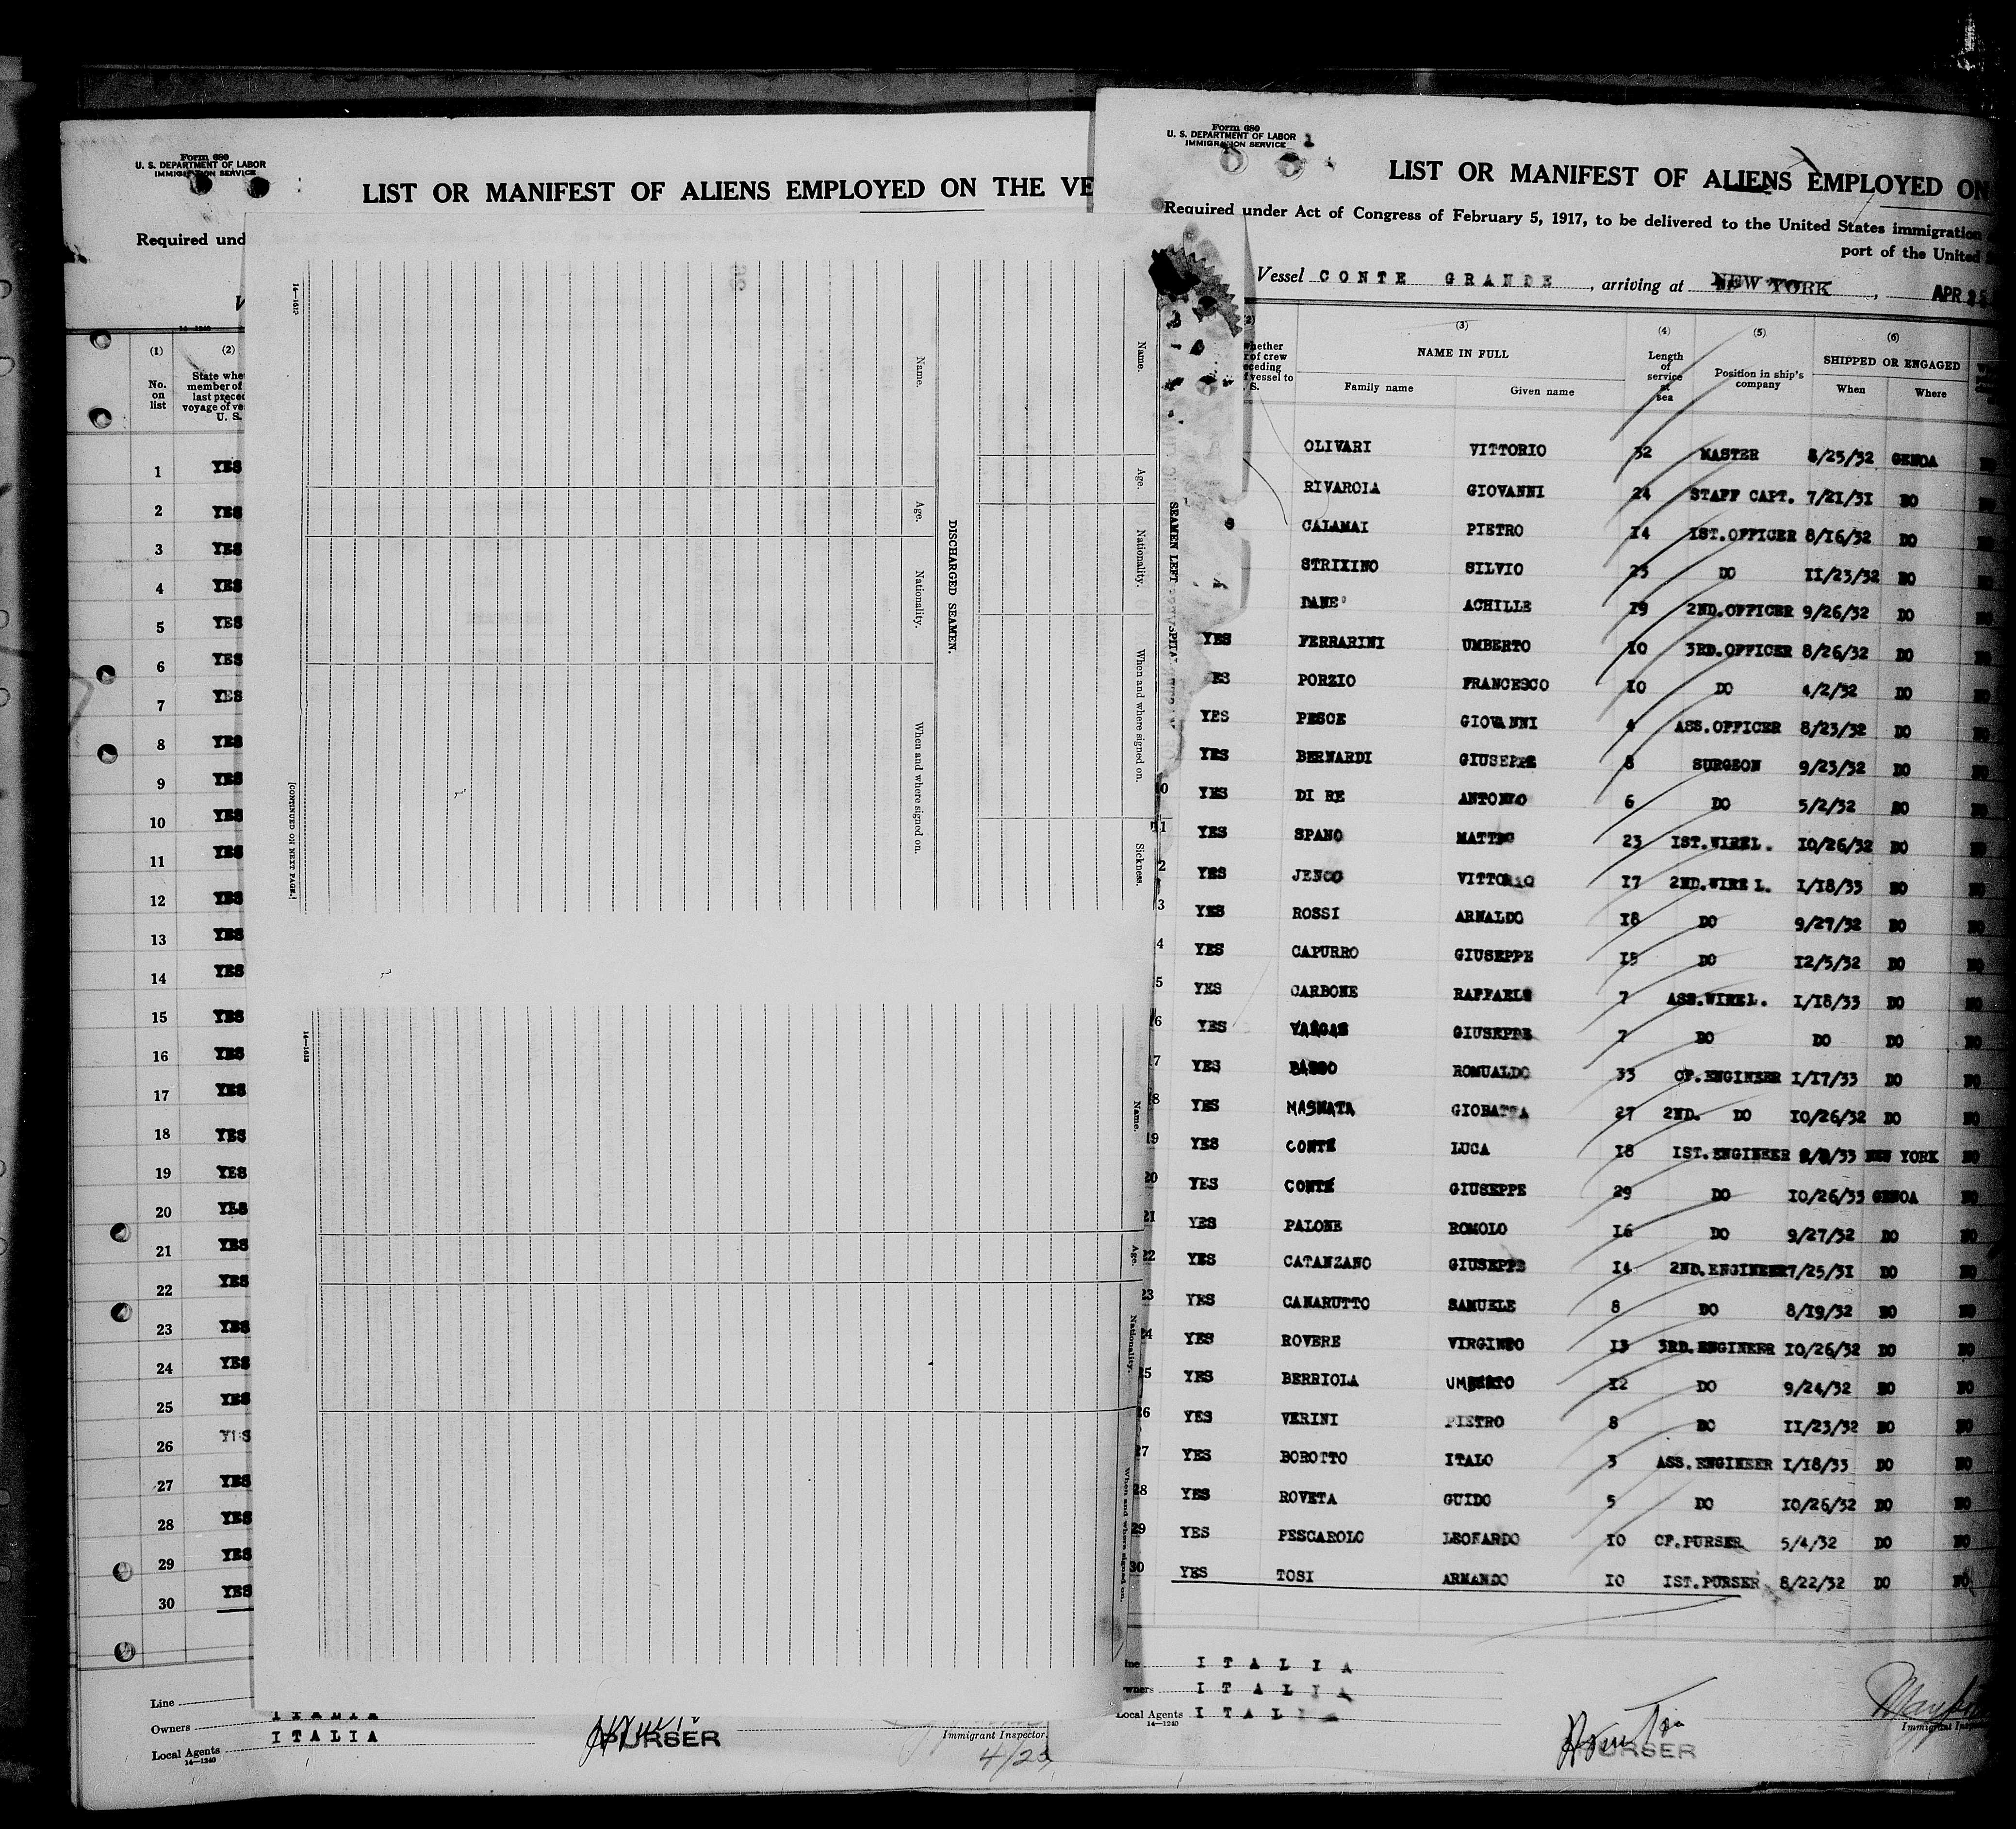 Form 680
U. S. DEPARTMENT OF LABOR
IMMIGRATION SERVICE
LIST OR MANIFEST OF ALIENS EMPLOYED ON THE VE
Required und
14—1240
(1) (2)
No. on list
State whe
member of
last preced
voyage of ve
U. S.
1 YES
2 YES
3 YES
4 YES
5 YES
6 YES
7 YES
8 YES
9 YES
10 YES
11 YES
12 YES
13 YES
14 YES
15 YES
16 YES
17 YES
18 YES
19 YES
20 YES
21 YES
22 YES
23 YES
24 YES
25 YES
26 YES
27 YES
28 YES
29 YES
30 YES
Line
Owners ITALIA
Local Agents ITALIA
14—1240
PURSER
Immigrant Inspector.
4/25
14—1612
[CONTINUED ON NEXT PAGE.]
Name. Age. Nationality. When and where signed on.
DISCHARGED SEAMEN.
Name. Age. Nationality. When and where signed on. Sickness.
SEAMEN LEFT
14—1613
Name. Age. Nationality. When and where signed on.
Form 680
U. S. DEPARTMENT OF LABOR
IMMIGRATION SERVICE
1
LIST OR MANIFEST OF ALIENS EMPLOYED ON
Required under Act of Congress of February 5, 1917, to be delivered to the United States immigration
port of the United
Vessel CONTE GRANDE, arriving at NEW YORK, APR 25
(3) (4) (5) (6)
NAME IN FULL
Family name Given name
Length of service at sea
Position in ship's company
SHIPPED OR ENGAGED
When Where
OLIVARI VITTORIO 32 MASTER 8/25/32 GENOA NO
RIVAROLA GIOVANNI 24 STAFF CAPT. 7/21/31 DO NO
CALAMAI PIETRO 14 IST.OFFICER 8/16/32 DO NO
STRIXINO SILVIO 23 DO 11/23/32 DO NO
DANE' ACHILLE 19 2ND.OFFICER 9/26/32 DO NO
YES FERRARINI UMBERTO 10 3RD.OFFICER 8/26/32 DO NO
YES PORZIO FRANCESCO 10 DO 4/2/32 DO NO
YES PESCE GIOVANNI 4 ASS.OFFICER 8/23/32 DO NO
YES BERNARDI GIUSEPPE 8 SURGEON 9/23/32 DO NO
YES DI RE ANTONIO 6 DO 5/2/32 DO NO
YES SPANO MATTEO 23 IST.WIREL. 10/26/32 DO NO
YES JENCO VITTORIO 17 2ND.WIREL. 1/18/33 DO NO
YES ROSSI ARNALDO 18 DO 9/27/32 DO NO
YES CAPURRO GIUSEPPE 15 DO 12/5/32 DO NO
YES CARBONE RAFFAELE 7 ASS.WIREL. 1/18/33 DO NO
YES VARGAS GIUSEPPE 7 DO DO DO NO
YES BASSO ROMUALDO 33 CF.ENGINEER 1/17/33 DO NO
YES MASNATA GIOBATTA 27 2ND. DO 10/26/32 DO NO
YES CONTE LUCA 18 IST.ENGINEER /33 NEW YORK NO
20 YES CONTE GIUSEPPE 29 DO 10/26/33 GENOA NO
21 YES PALONE ROMOLO 16 DO 9/27/32 DO NO
22 YES CATANZANO GIUSEPPE 14 2ND.ENGINEER 7/25/31 DO NO
23 YES CANARUTTO SAMUELE 8 DO 8/19/32 DO NO
24 YES ROVERE VIRGINIO 13 3RD.ENGINEER 10/26/32 DO NO
YES BERRIOLA UMBERTO 12 DO 9/24/32 DO NO
YES VERINI PIETRO 8 DO 11/23/32 DO NO
YES BOROTTO ITALO 3 ASS.ENGINEER 1/18/33 DO NO
28 YES ROVETA GUIDO 5 DO 10/26/32 DO NO
29 YES PESCAROLO LEONARDO 10 CF.PURSER 5/4/32 DO NO
30 YES TOSI ARMANDO 10 IST.PURSER 8/22/32 DO NO
ITALIA
ITALIA
Local Agents ITALIA
14—1240
PURSER
Immigrant Insp